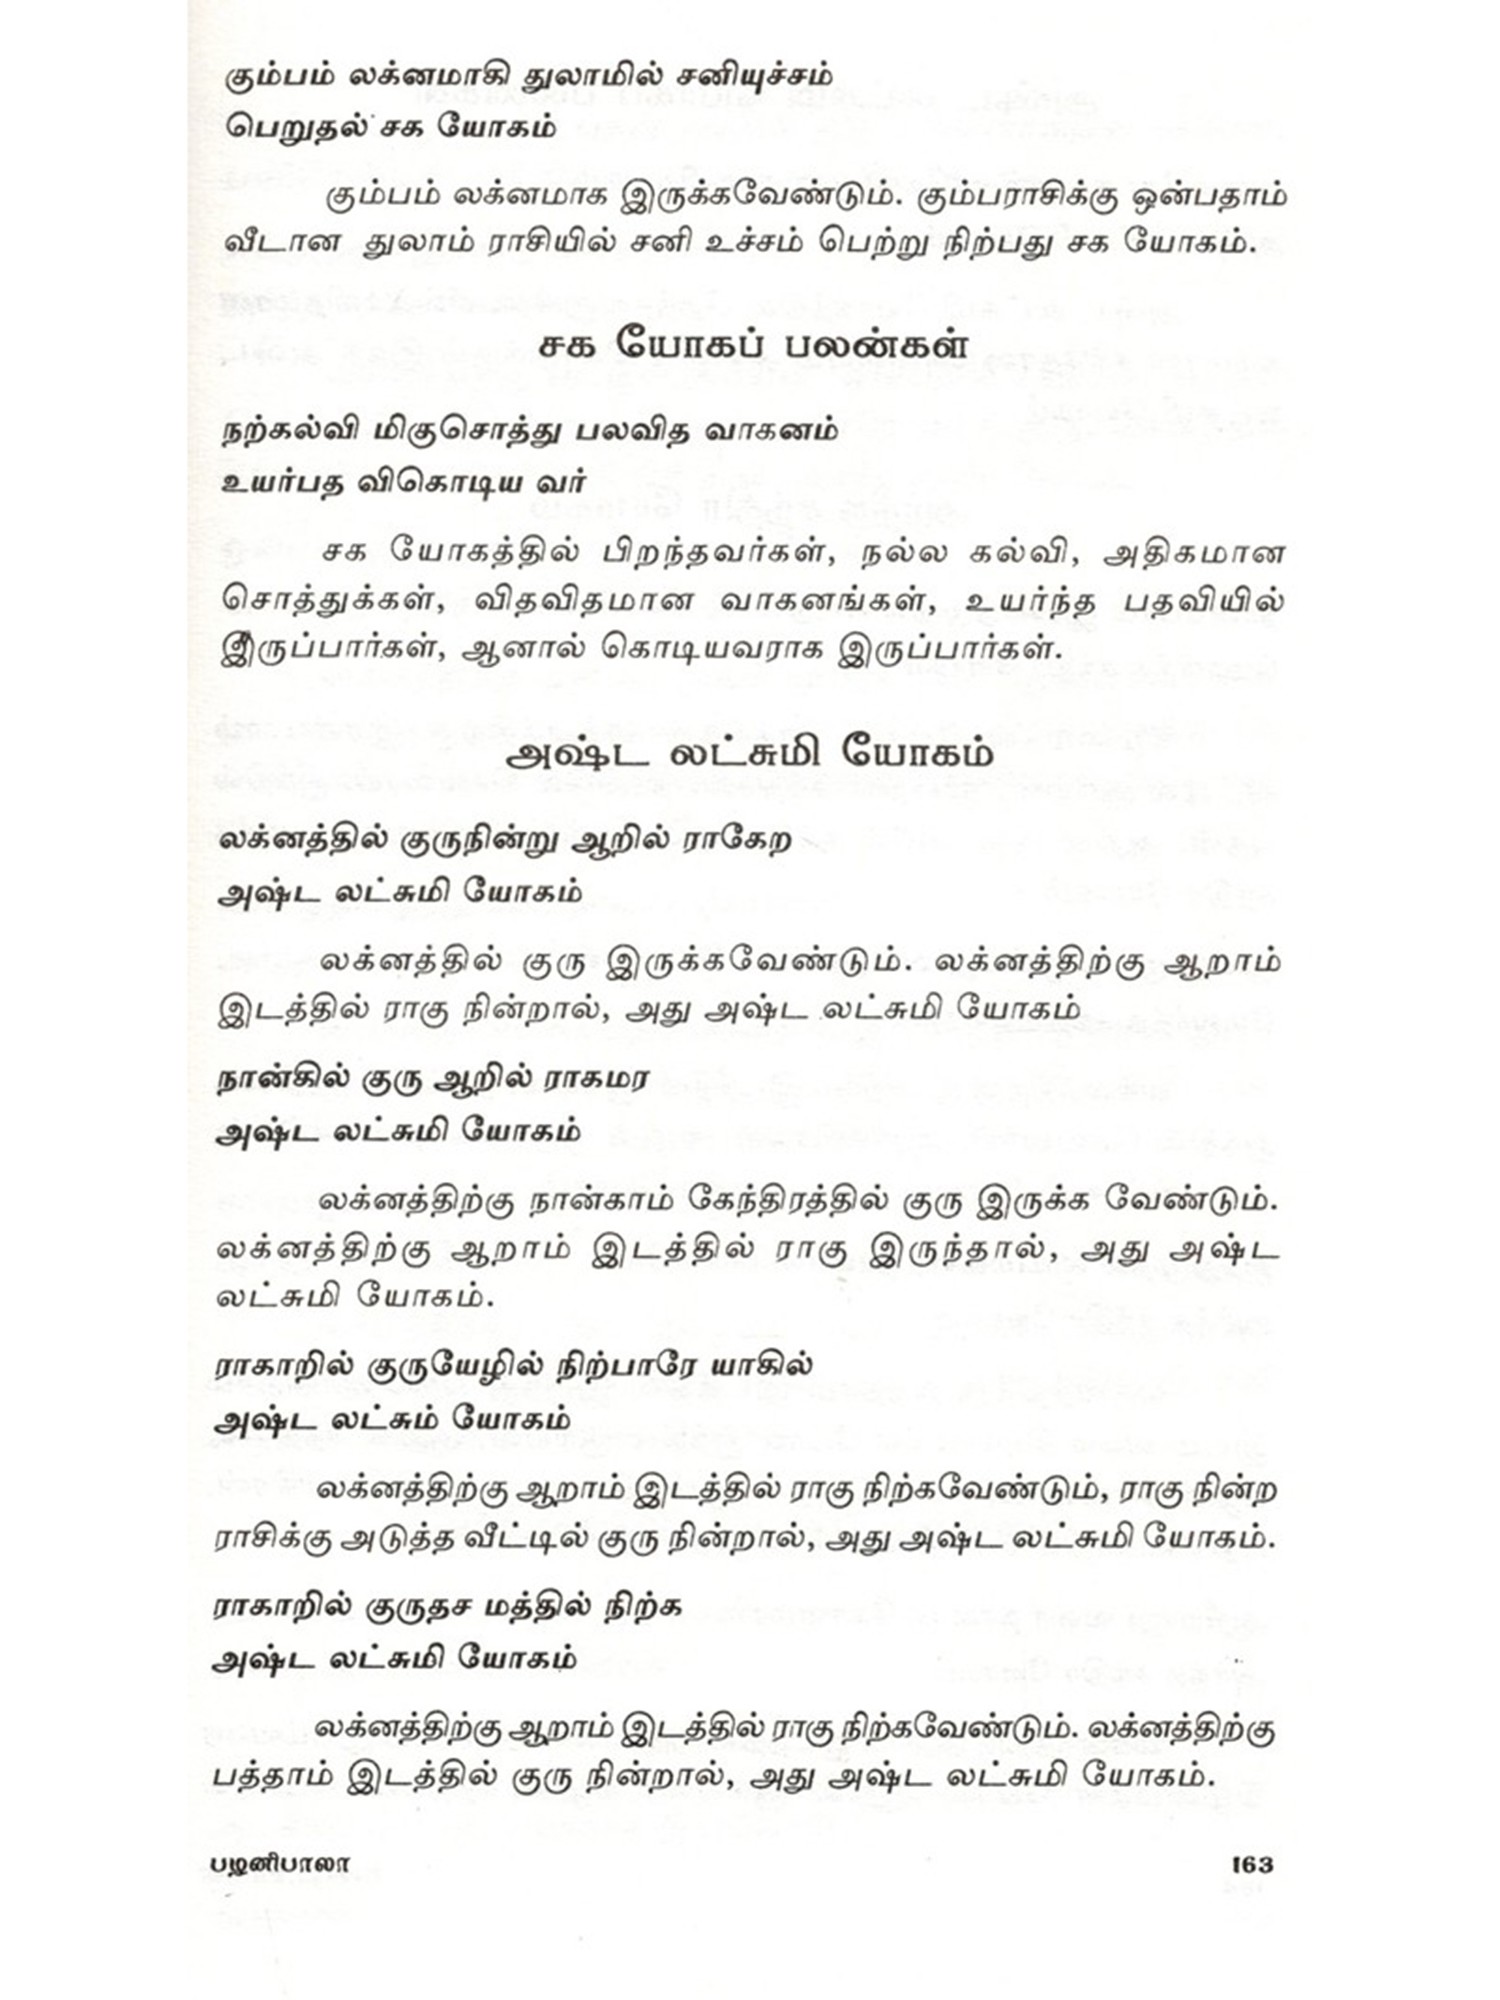 கும்பம் லக்னமாகி துலாமில் சனியுச்சம்
பெறுதல் சக யோகம்
கும்பம் லக்னமாக இருக்கவேண்டும். கும்பராசிக்கு ஒன்பதாம்
வீடான துலாம் ராசியில் சனி உச்சம் பெற்று நிற்பது சக யோகம்.
சக யோகப் பலன்கள்
நற்கல்வி மிகுசொத்து பலவித வாகனம்
உயர்பத விகொடிய வர்
சக யோகத்தில் பிறந்தவர்கள், நல்ல கல்வி, அதிகமான
சொத்துக்கள், விதவிதமான வாகனங்கள், உயர்ந்த பதவியில்
இருப்பார்கள், ஆனால் கொடியவராக இருப்பார்கள்.
அஷ்ட லட்சுமி யோகம்
லக்னத்தில் குருநின்று ஆறில் ராகேற
அஷ்ட லட்சுமி யோகம்
லக்னத்தில் குரு இருக்கவேண்டும். லக்னத்திற்கு ஆறாம்
இடத்தில் ராகு நின்றால், அது அஷ்ட லட்சுமி யோகம்
நான்கில் குரு ஆறில் ராகமர
அஷ்ட லட்சுமி யோகம்
லக்னத்திற்கு நான்காம் கேந்திரத்தில் குரு இருக்க வேண்டும்.
லக்னத்திற்கு ஆறாம் இடத்தில் ராகு இருந்தால், அது அஷ்ட
லட்சுமி யோகம்.
ராகாறில் குருயேழில் நிற்பாரே யாகில்
அஷ்ட லட்சும் யோகம்
லக்னத்திற்கு ஆறாம் இடத்தில் ராகு நிற்கவேண்டும், ராகு நின்ற
ராசிக்கு அடுத்த வீட்டில் குரு நின்றால், அது அஷ்ட லட்சுமி யோகம்.
ராகாறில் குருதச மத்தில் நிற்க
அஷ்ட லட்சுமி யோகம்
லக்னத்திற்கு ஆறாம் இடத்தில் ராகு நிற்கவேண்டும். லக்னத்திற்கு
பத்தாம் இடத்தில் குரு நின்றால், அது அஷ்ட லட்சுமி யோகம்.
பழனிபாலா 163